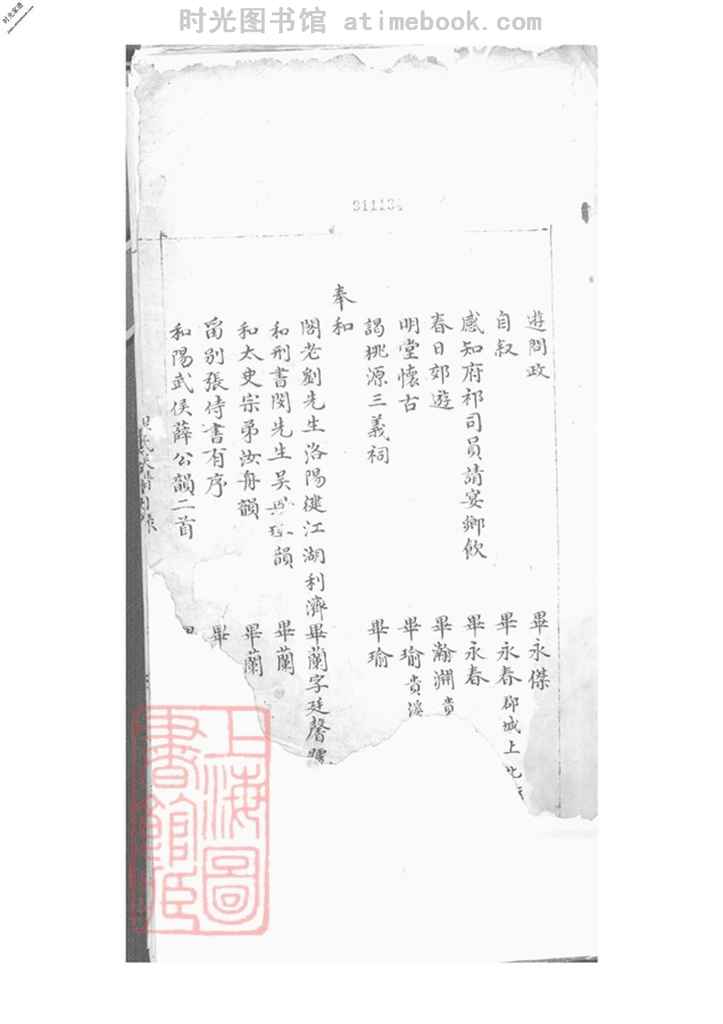 时光图书馆 atimebook.com
311134
遊問政 畢永傑
自叙 畢永春郡城上北
感知府祁司員請宴鄉飲 畢永春
春日郊遊 畢瀚淵貴
明堂懷古 畢瑜貴溪
謁桃源三義祠 畢瑜
奉和
閣老劉先生洛陽健江湖利濟畢蘭字廷馨號
和刑書閔先生吴興韻 畢蘭
和太史宗弟汝舟韻 畢蘭
留别張侍書有序 畢
和陽武侯薛公韻二首
上海圖書館藏